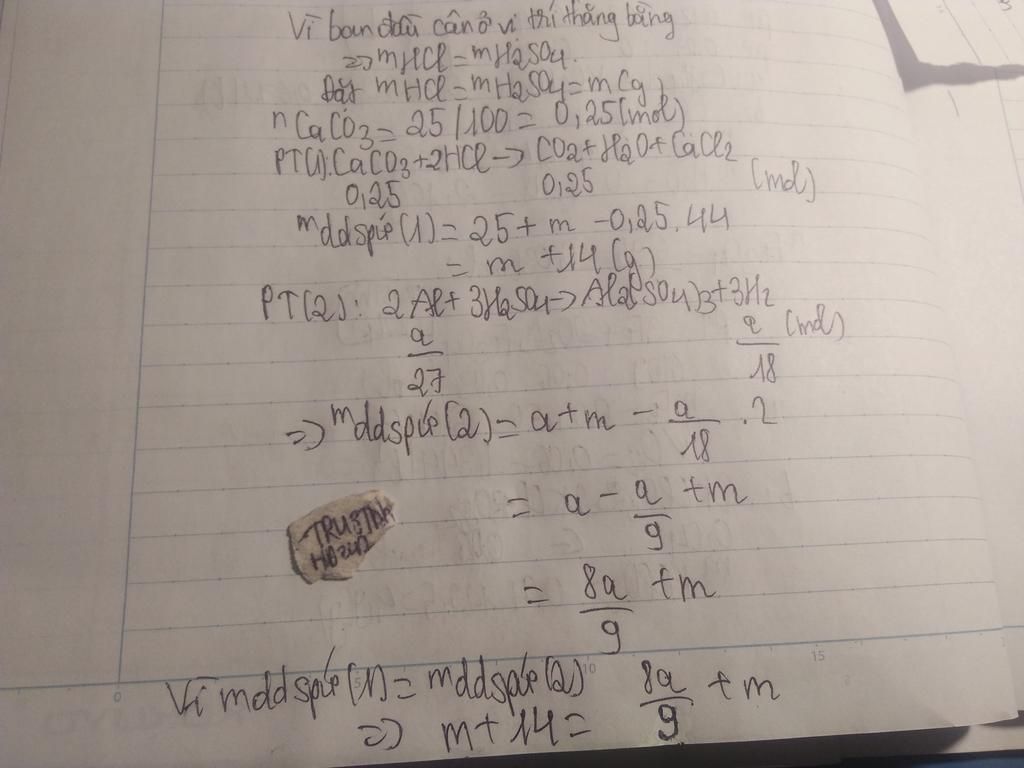 Vì ban đầu cân ở vi trí thăng bằng
=> mHCl = mH2SO4.
Đặt mHCl = mH2SO4 = m(g)
nCaCO3 = 25/100 = 0,25(mol)
PT(1): CaCO3 + 2HCl -> CO2 + H2O + CaCl2
0,25 0,25 (mol)
mddspứ(1) = 25 + m - 0,25.44
= m + 14 (g)
PT(2): 2Al + 3H2SO4 -> Al2(SO4)3 + 3H2
a/27 a/18 (mol)
=> mddspứ(2) = a + m - a/18 .2
= a - a/9 + m
= 8a/9 + m
Vì mddspứ(1) = mddspứ(2)
=> m + 14 = 8a/9 + m
5 10 15
0